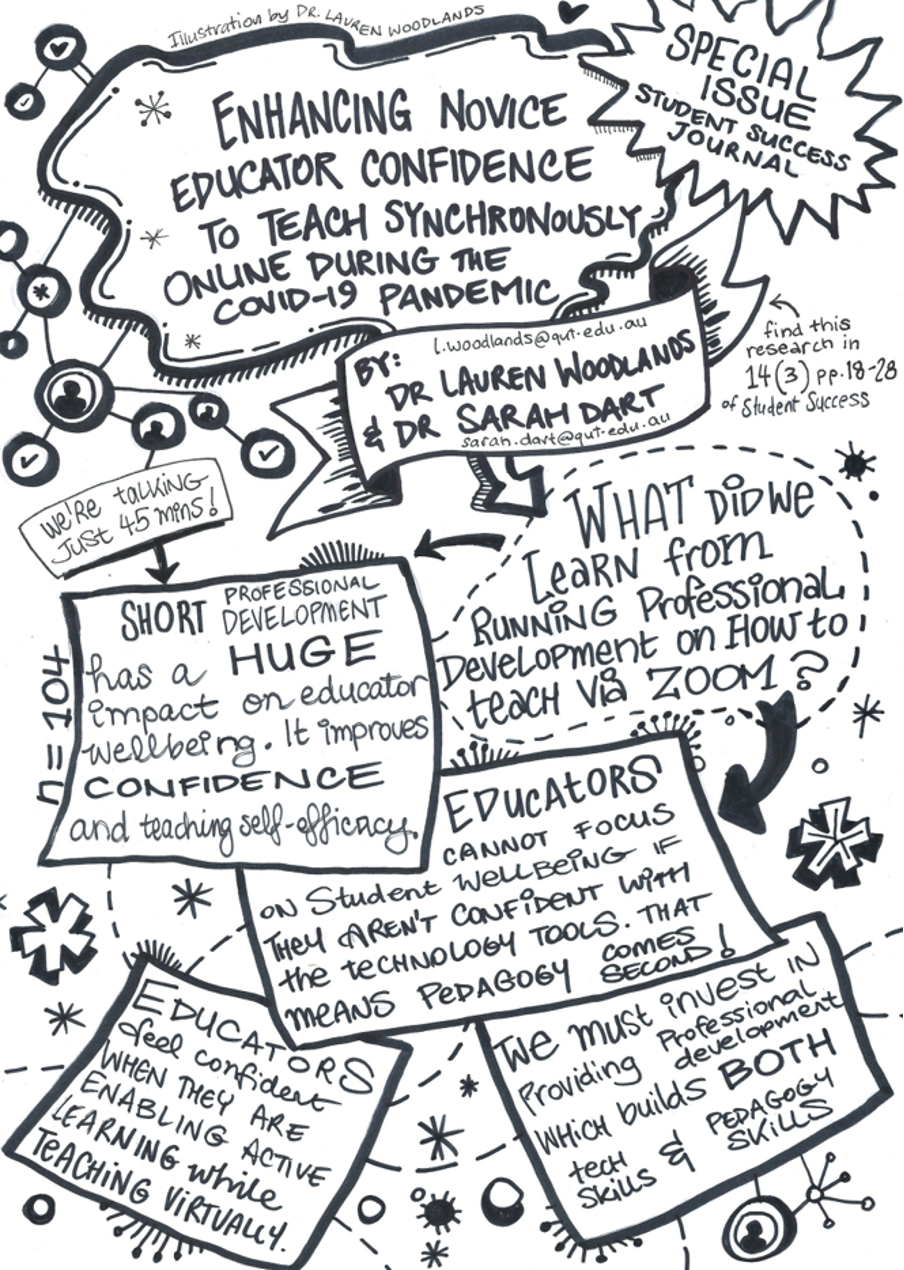 Illustration by DR. LAUREN WOODLANDS
SPECIAL
ISSUE
STUDENT SUCCESS
JOURNAL
ENHANCING NOVICE
EDUCATOR CONFIDENCE
TO TEACH SYNCHRONOUSLY
ONLINE DURING THE
COVID-19 PANDEMIC
l.woodlands@qut.edu.au
BY:
DR LAUREN WOODLANDS
& DR SARAH DART
sarah.dart@qut.edu.au
find this
research in
14(3) pp.18-28
of Student Success
We're talking
Just 45 mins!
WHAT DID WE
Learn from
Running Professional
Development on How to
teach via ZOOM?
n=104
SHORT PROFESSIONAL
DEVELOPMENT
has a HUGE
impact on educator
wellbeing. It improves
CONFIDENCE
and teaching self-efficacy.
EDUCATORS
CANNOT FOCUS
ON Student WELLBEING IF
THEY AREN'T CONFIDENT WITH
the TECHNOLOGY TOOLS. THAT
MEANS PEDAGOGY COMES
SECOND!
EDUCATORS
feel confident
WHEN THEY ARE
ENABLING ACTIVE
LEARNING while
TEACHING VIRTUALLY.
We must invest IN
Providing Professional
development
WHICH builds BOTH
tech & PEDAGOGY
Skills SKILLS